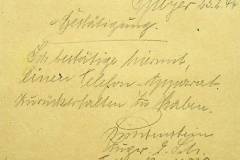 Meyer 23.2.44
Bestätigung.
Ich bestätige hiermit,
einen Telefon-Apparat
zurückerhalten zu haben.